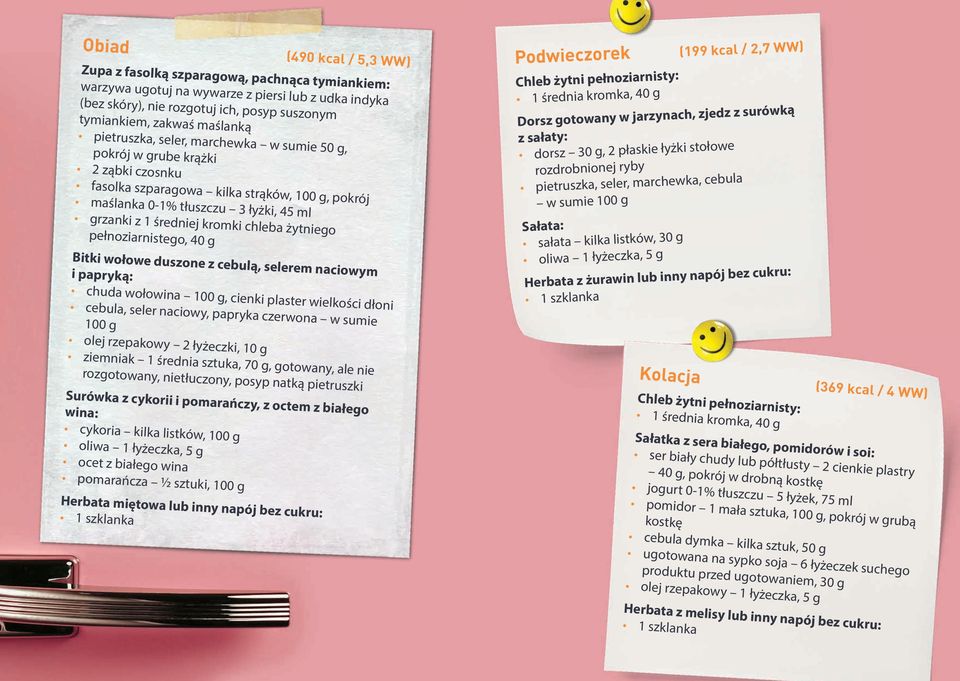 Obiad
(490 kcal / 5,3 WW)
Zupa z fasolką szparagową, pachnąca tymiankiem:
warzywa ugotuj na wywarze z piersi lub z udka indyka
(bez skóry), nie rozgotuj ich, posyp suszonym
tymiankiem, zakwaś maślanką
• pietruszka, seler, marchewka – w sumie 50 g,
pokrój w grube krążki
• 2 ząbki czosnku
• fasolka szparagowa – kilka strąków, 100 g, pokrój
• maślanka 0-1% tłuszczu – 3 łyżki, 45 ml
• grzanki z 1 średniej kromki chleba żytniego
pełnoziarnistego, 40 g
Bitki wołowe duszone z cebulą, selerem naciowym
i papryką:
• chuda wołowina – 100 g, cienki plaster wielkości dłoni
• cebula, seler naciowy, papryka czerwona – w sumie
100 g
• olej rzepakowy – 2 łyżeczki, 10 g
• ziemniak – 1 średnia sztuka, 70 g, gotowany, ale nie
rozgotowany, nietłuczony, posyp natką pietruszki
Surówka z cykorii i pomarańczy, z octem z białego
wina:
• cykoria – kilka listków, 100 g
• oliwa – 1 łyżeczka, 5 g
• ocet z białego wina
• pomarańcza – ½ sztuki, 100 g
Herbata miętowa lub inny napój bez cukru:
• 1 szklanka
Podwieczorek
(199 kcal / 2,7 WW)
Chleb żytni pełnoziarnisty:
• 1 średnia kromka, 40 g
Dorsz gotowany w jarzynach, zjedz z surówką
z sałaty:
• dorsz – 30 g, 2 płaskie łyżki stołowe
rozdrobnionej ryby
• pietruszka, seler, marchewka, cebula
– w sumie 100 g
Sałata:
• sałata – kilka listków, 30 g
• oliwa – 1 łyżeczka, 5 g
Herbata z żurawin lub inny napój bez cukru:
• 1 szklanka
Kolacja
(369 kcal / 4 WW)
Chleb żytni pełnoziarnisty:
• 1 średnia kromka, 40 g
Sałatka z sera białego, pomidorów i soi:
• ser biały chudy lub półtłusty – 2 cienkie plastry
– 40 g, pokrój w drobną kostkę
• jogurt 0-1% tłuszczu – 5 łyżek, 75 ml
• pomidor – 1 mała sztuka, 100 g, pokrój w grubą
kostkę
• cebula dymka – kilka sztuk, 50 g
• ugotowana na sypko soja – 6 łyżeczek suchego
produktu przed ugotowaniem, 30 g
• olej rzepakowy – 1 łyżeczka, 5 g
Herbata z melisy lub inny napój bez cukru:
• 1 szklanka